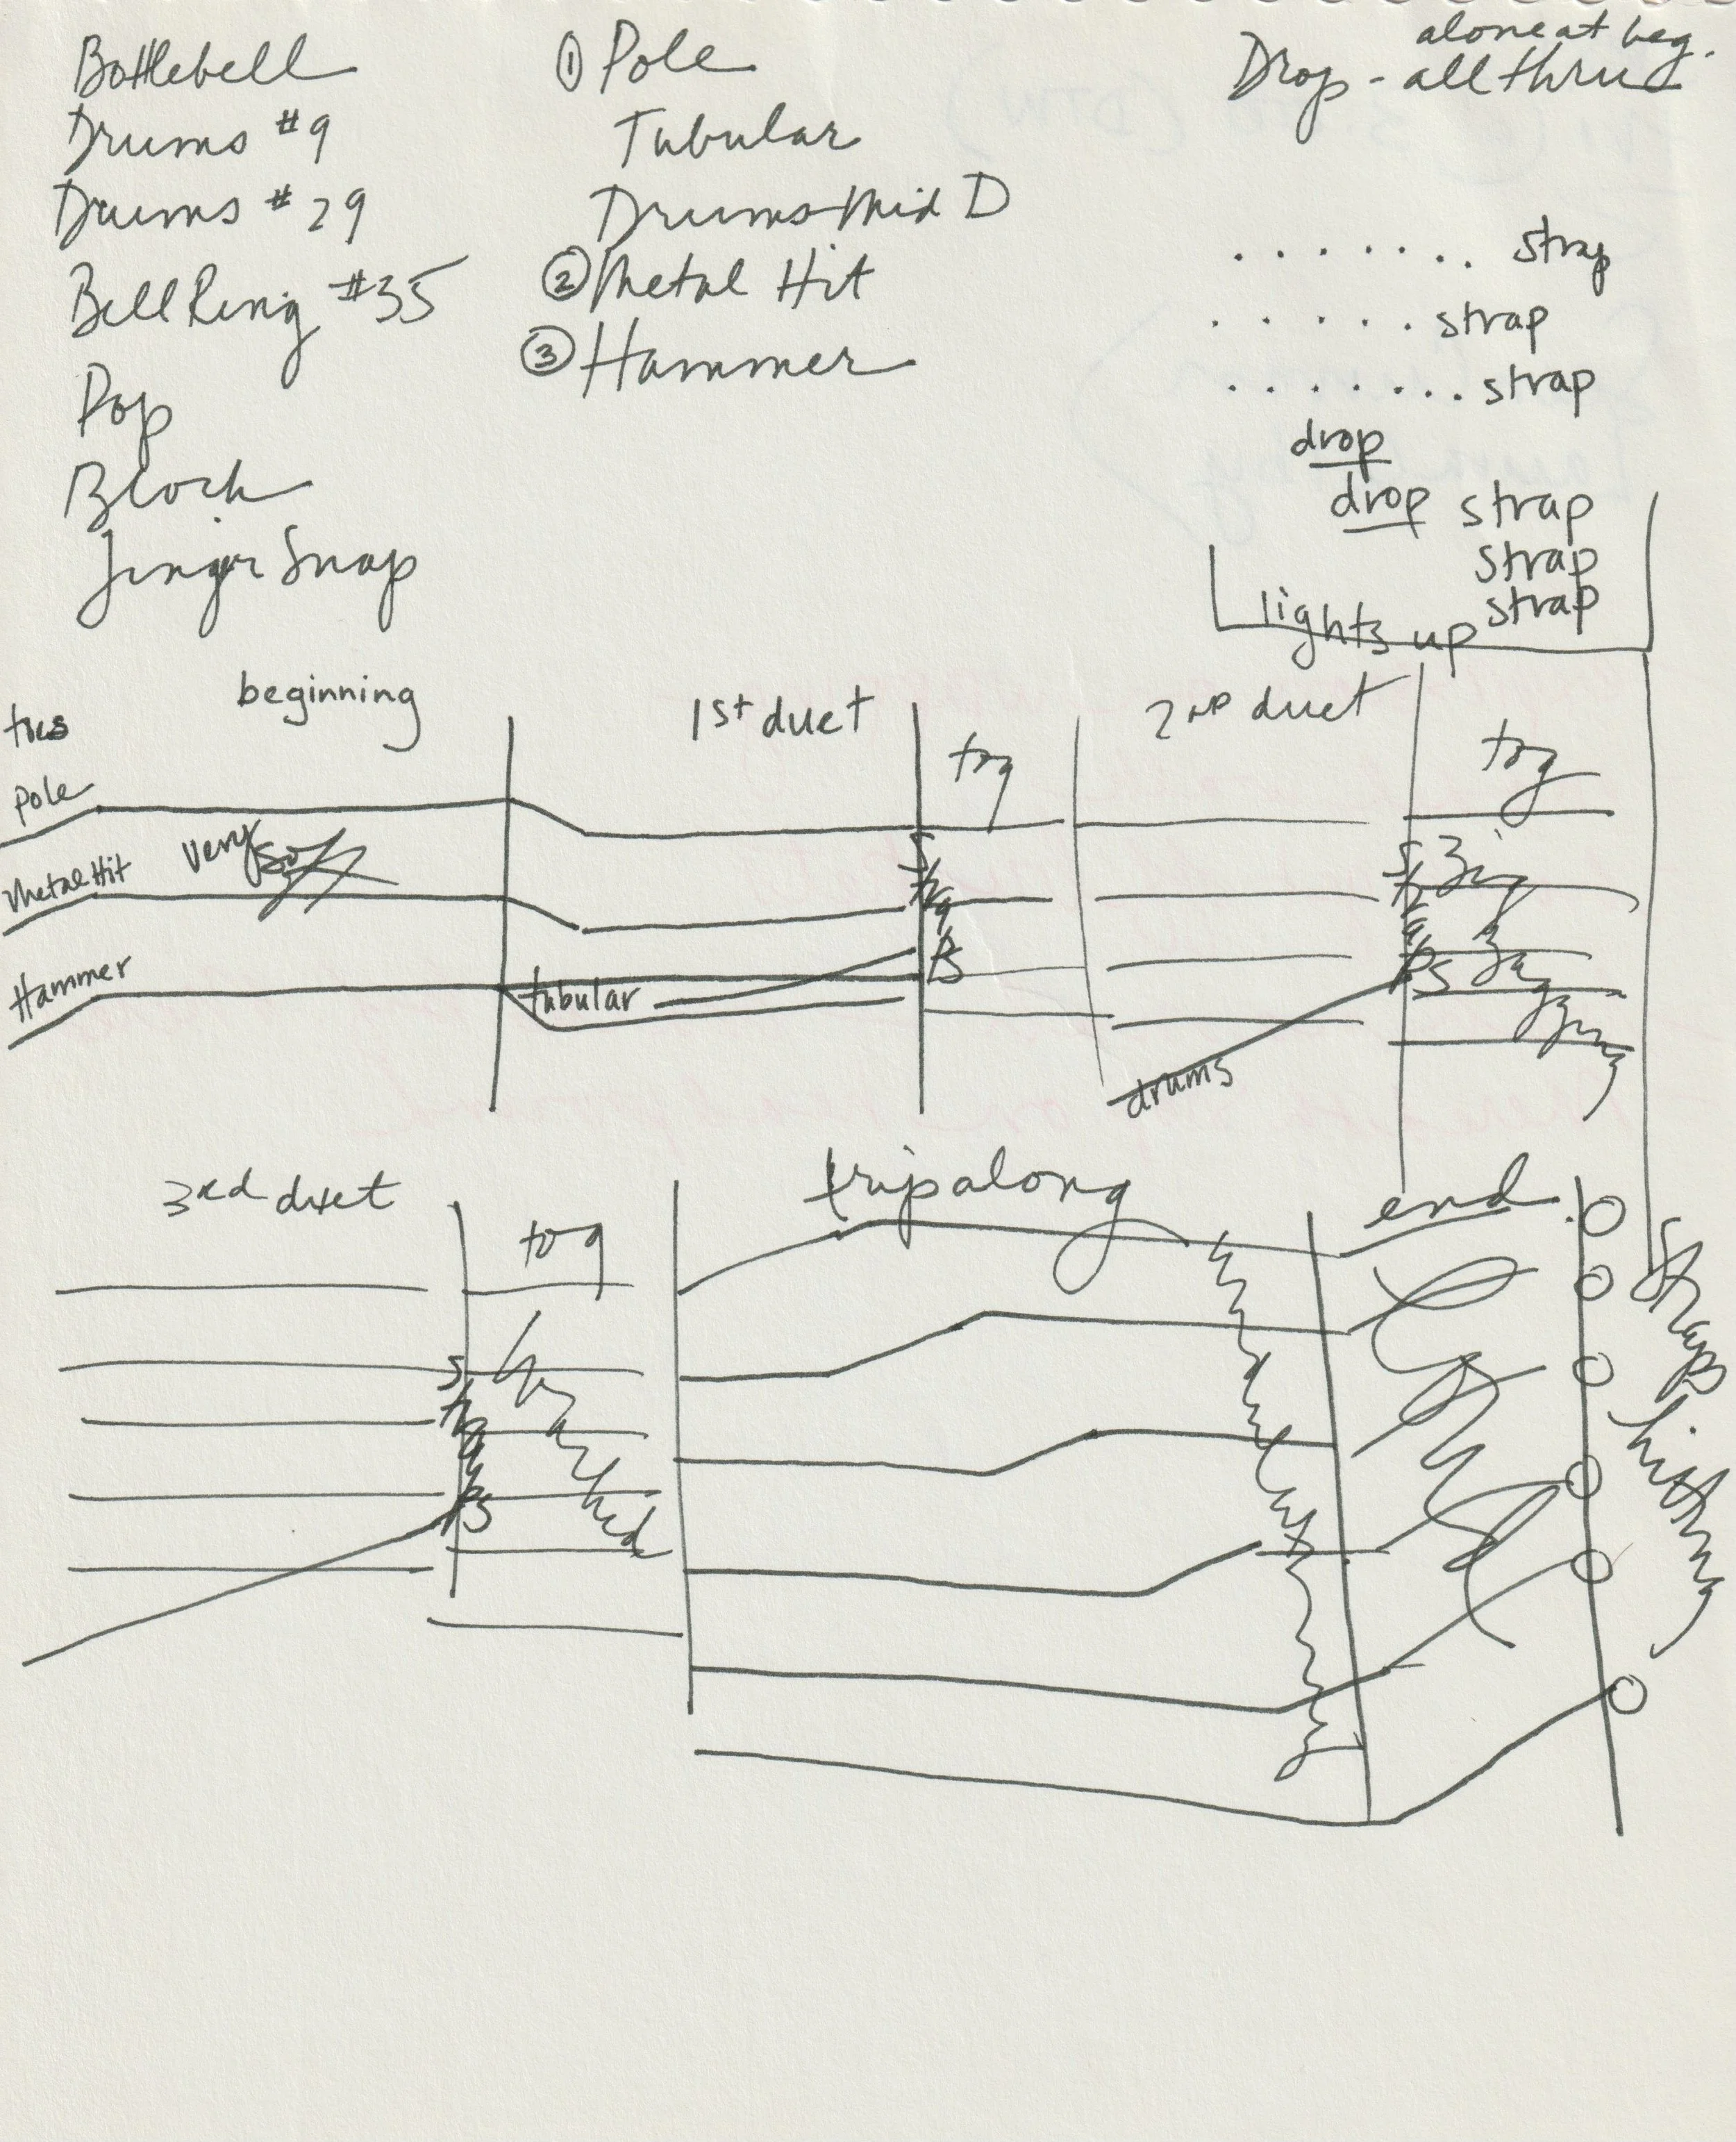 Bottlebell
Drums #9
Drums #29
Bell Ring #35
Pop
Block
Finger Snap
① Pole
Tubular
Drums Mid D
② Metal Hit
③ Hammer
alone at beg.
Drop - all thru
....... strap
...... strap
....... strap
drop
drop strap
strap
strap
lights up
beginning
1st duet
tog
2nd duet
tog
Pole
very soft
Metal Hit
Hammer
tubular
straps
drums
straps
zig
zagging
3rd duet
tog
straps
trip along
end
straps
hitting